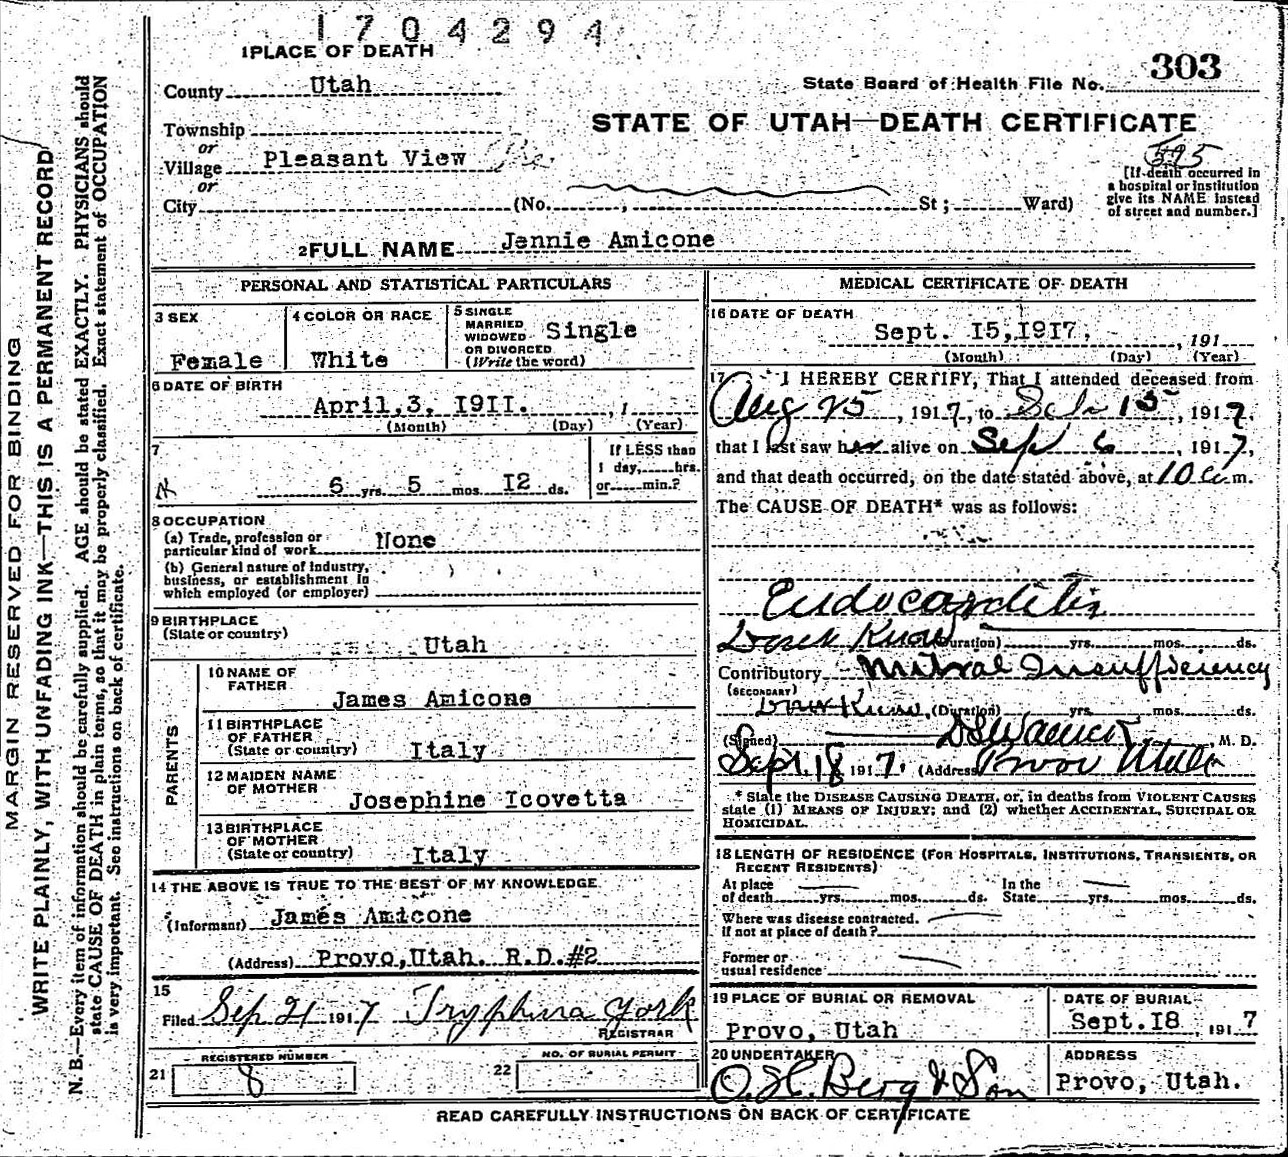 1704294
1 PLACE OF DEATH
303
State Board of Health File No.
County Utah
STATE OF UTAH—DEATH CERTIFICATE
Township
or
Village Pleasant View
or
City (No. , St ; Ward)
595
[If death occurred in
a hospital or institution
give its NAME instead
of street and number.]
2 FULL NAME Jennie Amicone
PERSONAL AND STATISTICAL PARTICULARS
3 SEX
Female
4 COLOR OR RACE
White
5 SINGLE
MARRIED
WIDOWED
OR DIVORCED
(Write the word)
Single
6 DATE OF BIRTH
April, 3, 1911. , 1
(Month) (Day) (Year)
7
6 yrs. 5 mos. 12 ds.
If LESS than
1 day, hrs.
or min.?
8 OCCUPATION
(a) Trade, profession or
particular kind of work None
(b) General nature of industry,
business, or establishment in
which employed (or employer)
9 BIRTHPLACE
(State or country)
Utah
PARENTS
10 NAME OF
FATHER
James Amicone
11 BIRTHPLACE
OF FATHER
(State or country) Italy
12 MAIDEN NAME
OF MOTHER
Josephine Icovetta
13 BIRTHPLACE
OF MOTHER
(State or country) Italy
14 THE ABOVE IS TRUE TO THE BEST OF MY KNOWLEDGE
(Informant) James Amicone
(Address) Provo, Utah. R.D.#2
15
Filed Sep 21 1917 Tryphena York
REGISTRAR
REGISTERED NUMBER
21 8
NO. OF BURIAL PERMIT
22
MEDICAL CERTIFICATE OF DEATH
16 DATE OF DEATH
Sept. 15, 1917. , 191
(Month) (Day) (Year)
17 I HEREBY CERTIFY, That I attended deceased from
Aug 25, 1917, to Sept 15, 1917,
that I last saw her alive on Sep 6, 1917,
and that death occurred, on the date stated above, at 10 a m.
The CAUSE OF DEATH* was as follows:
Endocarditis
Don't Know (Duration) yrs. mos. ds.
Contributory Mitral Insufficiency
(SECONDARY)
Don't Know, (Duration) yrs. mos. ds.
(Signed) M. D.
Sept. 18 1917. (Address) Provo Utah
* State the DISEASE CAUSING DEATH, or, in deaths from VIOLENT CAUSES
state (1) MEANS OF INJURY; and (2) whether ACCIDENTAL, SUICIDAL OR
HOMICIDAL.
18 LENGTH OF RESIDENCE (FOR HOSPITALS, INSTITUTIONS, TRANSIENTS, OR
RECENT RESIDENTS)
At place
of death yrs. mos. ds.
In the
State yrs. mos. ds.
Where was disease contracted.
if not at place of death?
Former or
usual residence
19 PLACE OF BURIAL OR REMOVAL
Provo, Utah
DATE OF BURIAL
Sept. 18 1917
20 UNDERTAKER
O. H. Berg & Son
ADDRESS
Provo, Utah.
READ CAREFULLY INSTRUCTIONS ON BACK OF CERTIFICATE
MARGIN RESERVED FOR BINDING
WRITE PLAINLY, WITH UNFADING INK—THIS IS A PERMANENT RECORD
N. B.—Every item of information should be carefully supplied. AGE should be stated EXACTLY. PHYSICIANS should
state CAUSE OF DEATH in plain terms, so that it may be properly classified. Exact statement of OCCUPATION
is very important. See instructions on back of certificate.